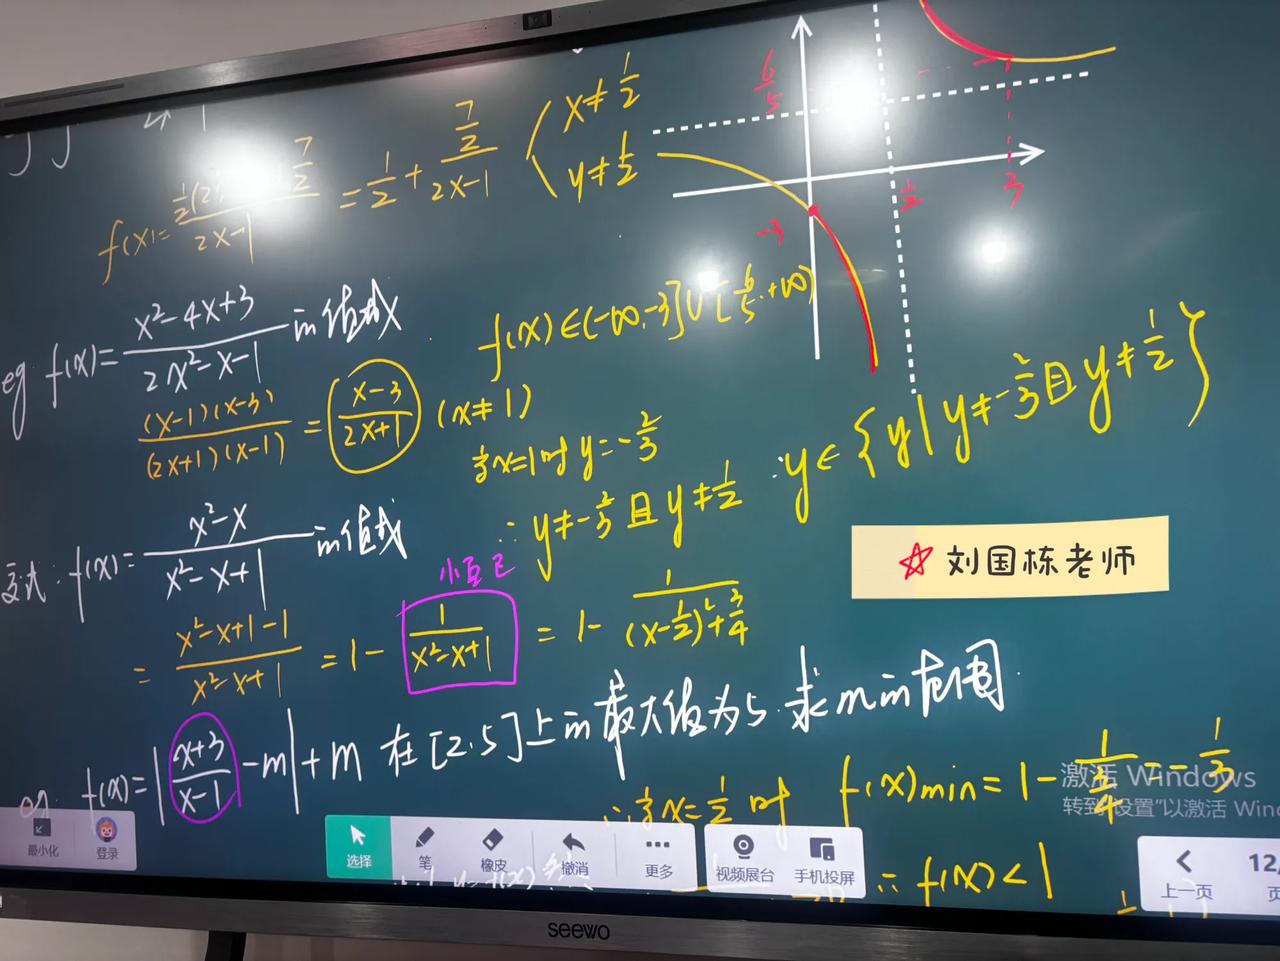 f(x)= = 1/2 + (7/2)/(2x-1) { x≠1/2
y≠1/2
6/5
1/2
3
-3
f(x)∈(-∞,-3]∪[6/5,+∞)
eg f(x)= (x²-4x+3)/(2x²-x-1) 的值域
(x-1)(x-3)/(2x+1)(x-1) = (x-3)/(2x+1) (x≠1)
当x=1时 y=-2/3
∴ y≠-2/3 且 y≠1/2
∴y∈{y|y≠-2/3且y≠1/2}
变式: f(x)= (x²-x)/(x²-x+1) 的值域
小自己
= (x²-x+1-1)/(x²-x+1) = 1- 1/(x²-x+1) = 1- 1/((x-1/2)²+3/4)
刘国栋老师
f(x)=|(x+3)/(x-1) -m|+m 在[2.5]上的最大值为5.求m的范围.
∴当x=1/2时 f(x)min=1- 1/(3/4) =-1/3
∴ f(x)<1
激活 Windows
转到"设置"以激活 Win
最小化
登录
选择
笔
橡皮
撤消
更多
视频展台
手机投屏
上一页
12
页
seewo